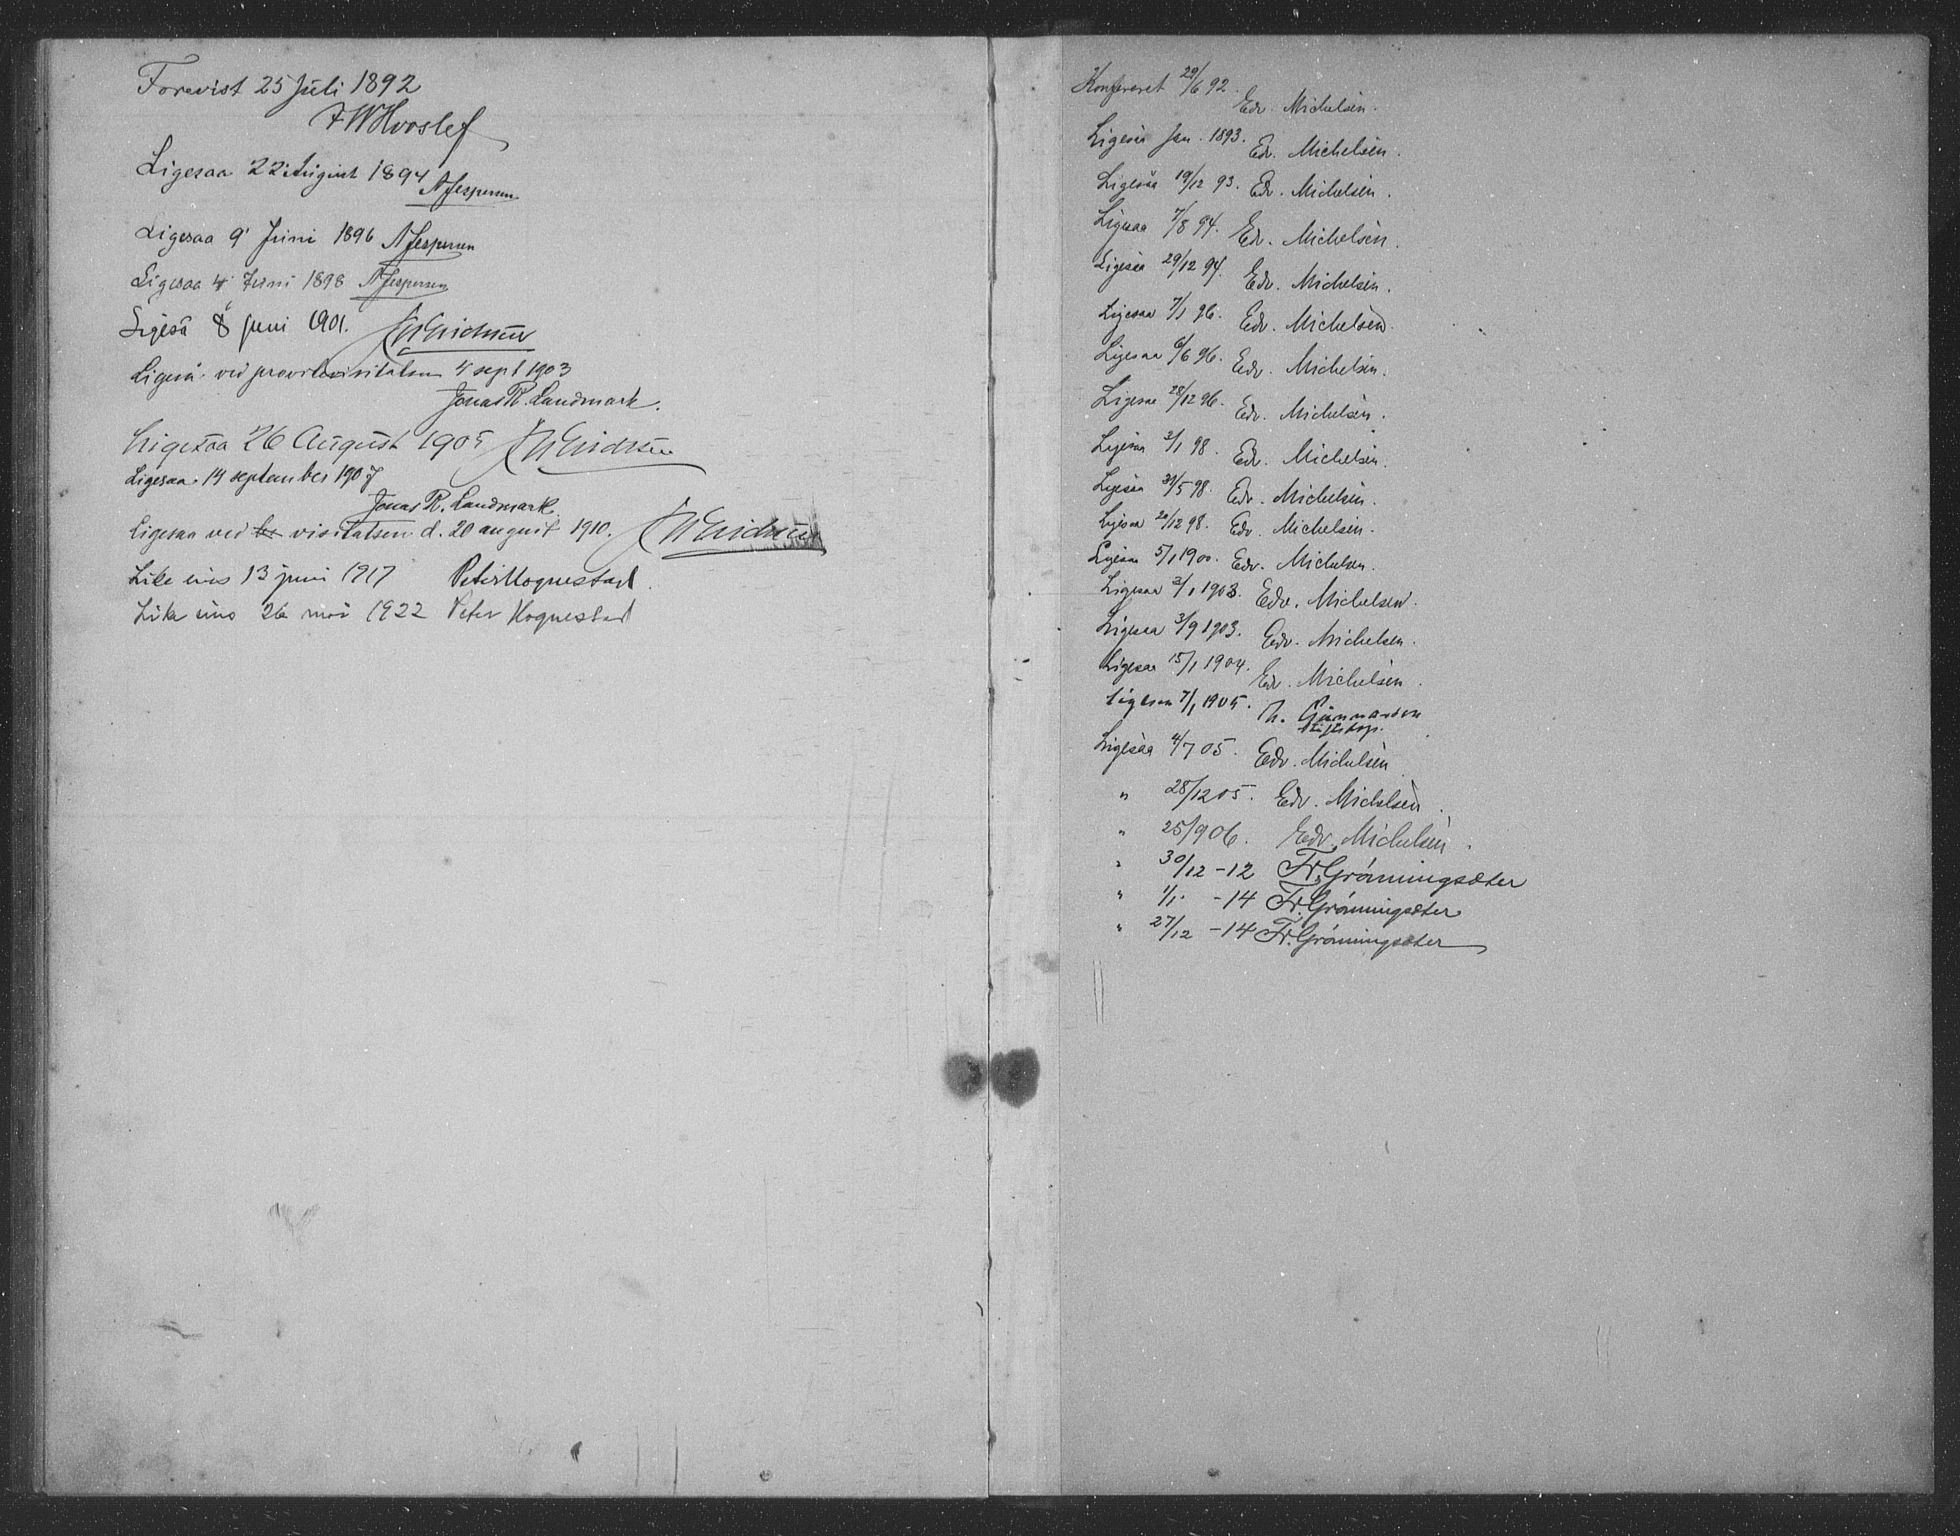 Forevist 25 Juli 1892
FWHvoslef
Ligesaa 22 August 1894 N Jespersen
Ligesaa 9' Juni 1896 N Jespersen
Ligesaa 4' Juni 1898 N Jespersen
Ligesaa 8 juni 1901.
Ligesaa ved provstevisitatsen 4 sept 1903
Jonas R. Landmark.
Ligesaa 26 August 1905
Ligesaa. 14 september 1907
Jonas R. Landmark.
Ligesaa ved visitatsen d. 20 august 1910.
Like eins 13 juni 1917 Peter Hognestad.
Like eins 26 mai 1922 Peter Hognestad
Konfereret 29/6 92.
Edv. Michelsen.
Ligesaa Jan. 1893. Edv. Michelsen.
Ligesaa 19/12 93. Edv. Michelsen.
Ligesaa 7/8 94. Edv. Michelsen.
Ligesaa 29/12 94. Edv. Michelsen.
Ligesaa 7/1 96. Edv. Michelsen.
Ligesaa 6/6 96. Edv. Michelsen.
Ligesaa 28/12 96. Edv. Michelsen.
Ligesaa 3/1 98. Edv. Michelsen.
Ligesaa 31/5 98. Edv. Michelsen.
Ligesaa 20/12 98. Edv. Michelsen.
Ligesaa 5/1 1900. Edv. Michelsen.
Ligesaa 2/1 1903. Edv. Michelsen.
Ligesaa 3/9 1903. Edv. Michelsen.
Ligesaa 15/1 1904. Edv. Michelsen.
Ligesaa 7/1 1905. N. Gunnarson
Ligesaa 4/7 05. Edv. Michelsen
" 28/12 05. Edv. Michelsen.
" 25/9 06. Edv. Michelsen.
" 30/12 -12 Fr. Grónningsæter
" 1/1. -14 Fr. Grónningsæter
" 27/12 -14 Fr. Grónningsæter